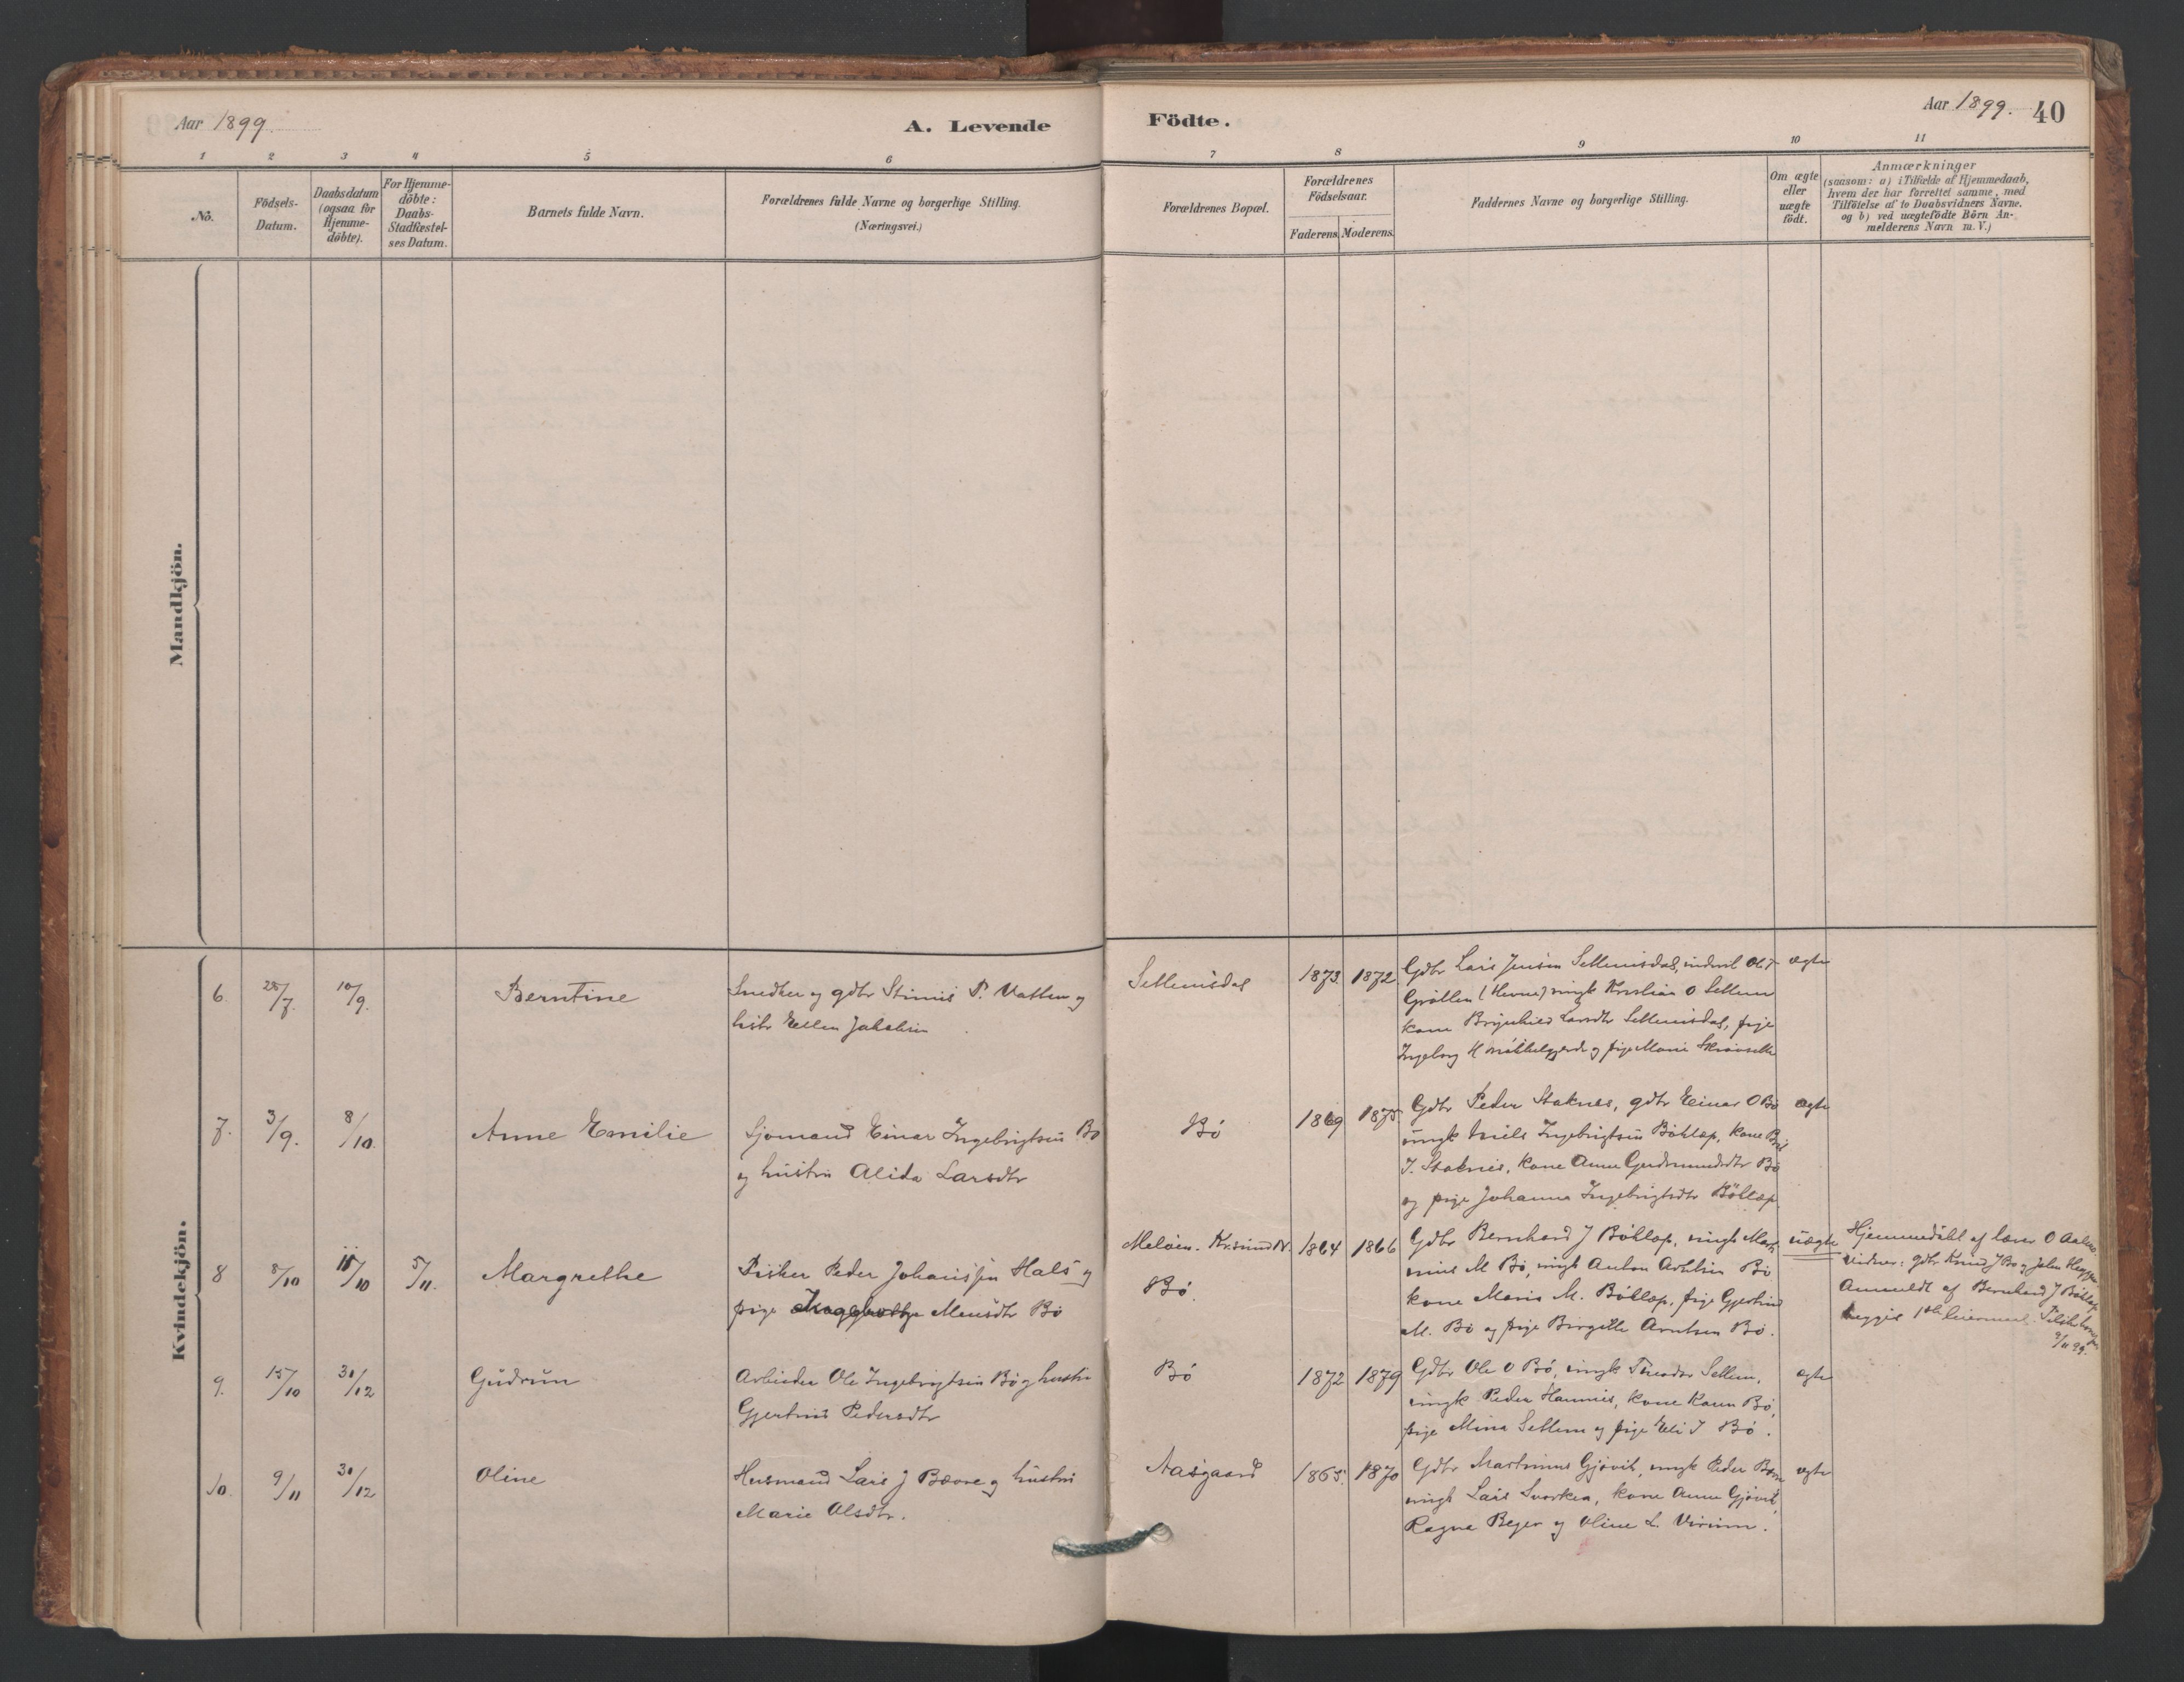 Aar 1899.
A. Levende
Födte.
Aar 1899.
40
1 2 3 4 5 6 7 8 9 10 11
No.
Födsels-
Datum.
Daabsdatum
(ogsaa for
Hjemme-
döbte).
For Hjemme-
döbte:
Daabs-
Stadfæstel-
ses Datum.
Barnets fulde Navn.
Forældrenes fulde Navne og borgerlige Stilling.
(Næringsvei.)
Forældrenes Bopæl.
Forældrenes
Födselsaar.
Faderens. Moderens.
Faddernes Navne og borgerlige Stilling.
Om ægte
eller
uægte
födt.
Anmærkninger
(saasom: a) i Tilfælde af Hjemmedaab,
hvem der har forrettet samme, med
Tilföielse af to Daabsvidners Navne.
og b) ved uægtefödte Börn An-
melderens Navn m. V.)
Mandkjön.
Kvindekjön.
6. 10/9.
Berntine
Snedker og gdbr P. Vatten og
Ellen
Settemsdal
1873. 1872
Gdbr Lars Jensen Settemsdal,
(Hevne) ungk Kristian O Settem
kone Larsdtr Settemsdal, pige
Ingeborg og pige Marie
ægte
7. 3/9. 8/10.
Anne Emilie
Sjømand Einar Ingebrigtsen Bø
og hustru Alida Larsdtr
Bø
1869 1875
Gdbr Peder Staknes, gdbr Einar O Bø
ungk Niels Ingebrigtsen Bøklep, kone
J. Staknes, kone Anne Gudmundsdtr Bø
og pige Johanna Ingebrigtsdtr Bøklep.
ægte
8 8/10 15/10 5/11.
Margrethe
Fisker Peder Johanssøn Hals og
pige Monsdtr Bø
Meløen. Kr.sund N.
Bø.
1864 1866
Gdbr Bernhard J Bøklep, ungk Mart
inus M Bø, ungk Anton Arntsen Bø
kone Maria M. Bøklep, pige Gjertrud
M. Bø og pige Birgitte Arntsen Bø.
uægte
Hjemmedøbt af lærer O
vidner: gdbr Knud J Bø og John
Anmeldt af Bernhard J Bøklep
begges 1ste leiermaal.
9/11 99.
9. 15/10 31/12
Gudrun
Arbeider Ole Ingebrigtsen Bø og hustru
Gjertrud Pedersdtr
Bø
1872 1879
Gdbr Ole O Bø, ungk Theodor Settem,
ungk Peder Hamnes, kone Karen Bø,
pige Mina Settem og pige Eli J Bø.
ægte
10. 9/11 31/12
Oline
Husmand Lars J Bævre og hustru
Marie Olsdtr.
Aasgaard
1865. 1870
Gdbr Martinus Gjøvik, ungk Peder
ungk Lars Svorken, kone Anne Gjøvik,
Ragna og Oline L.
ægte